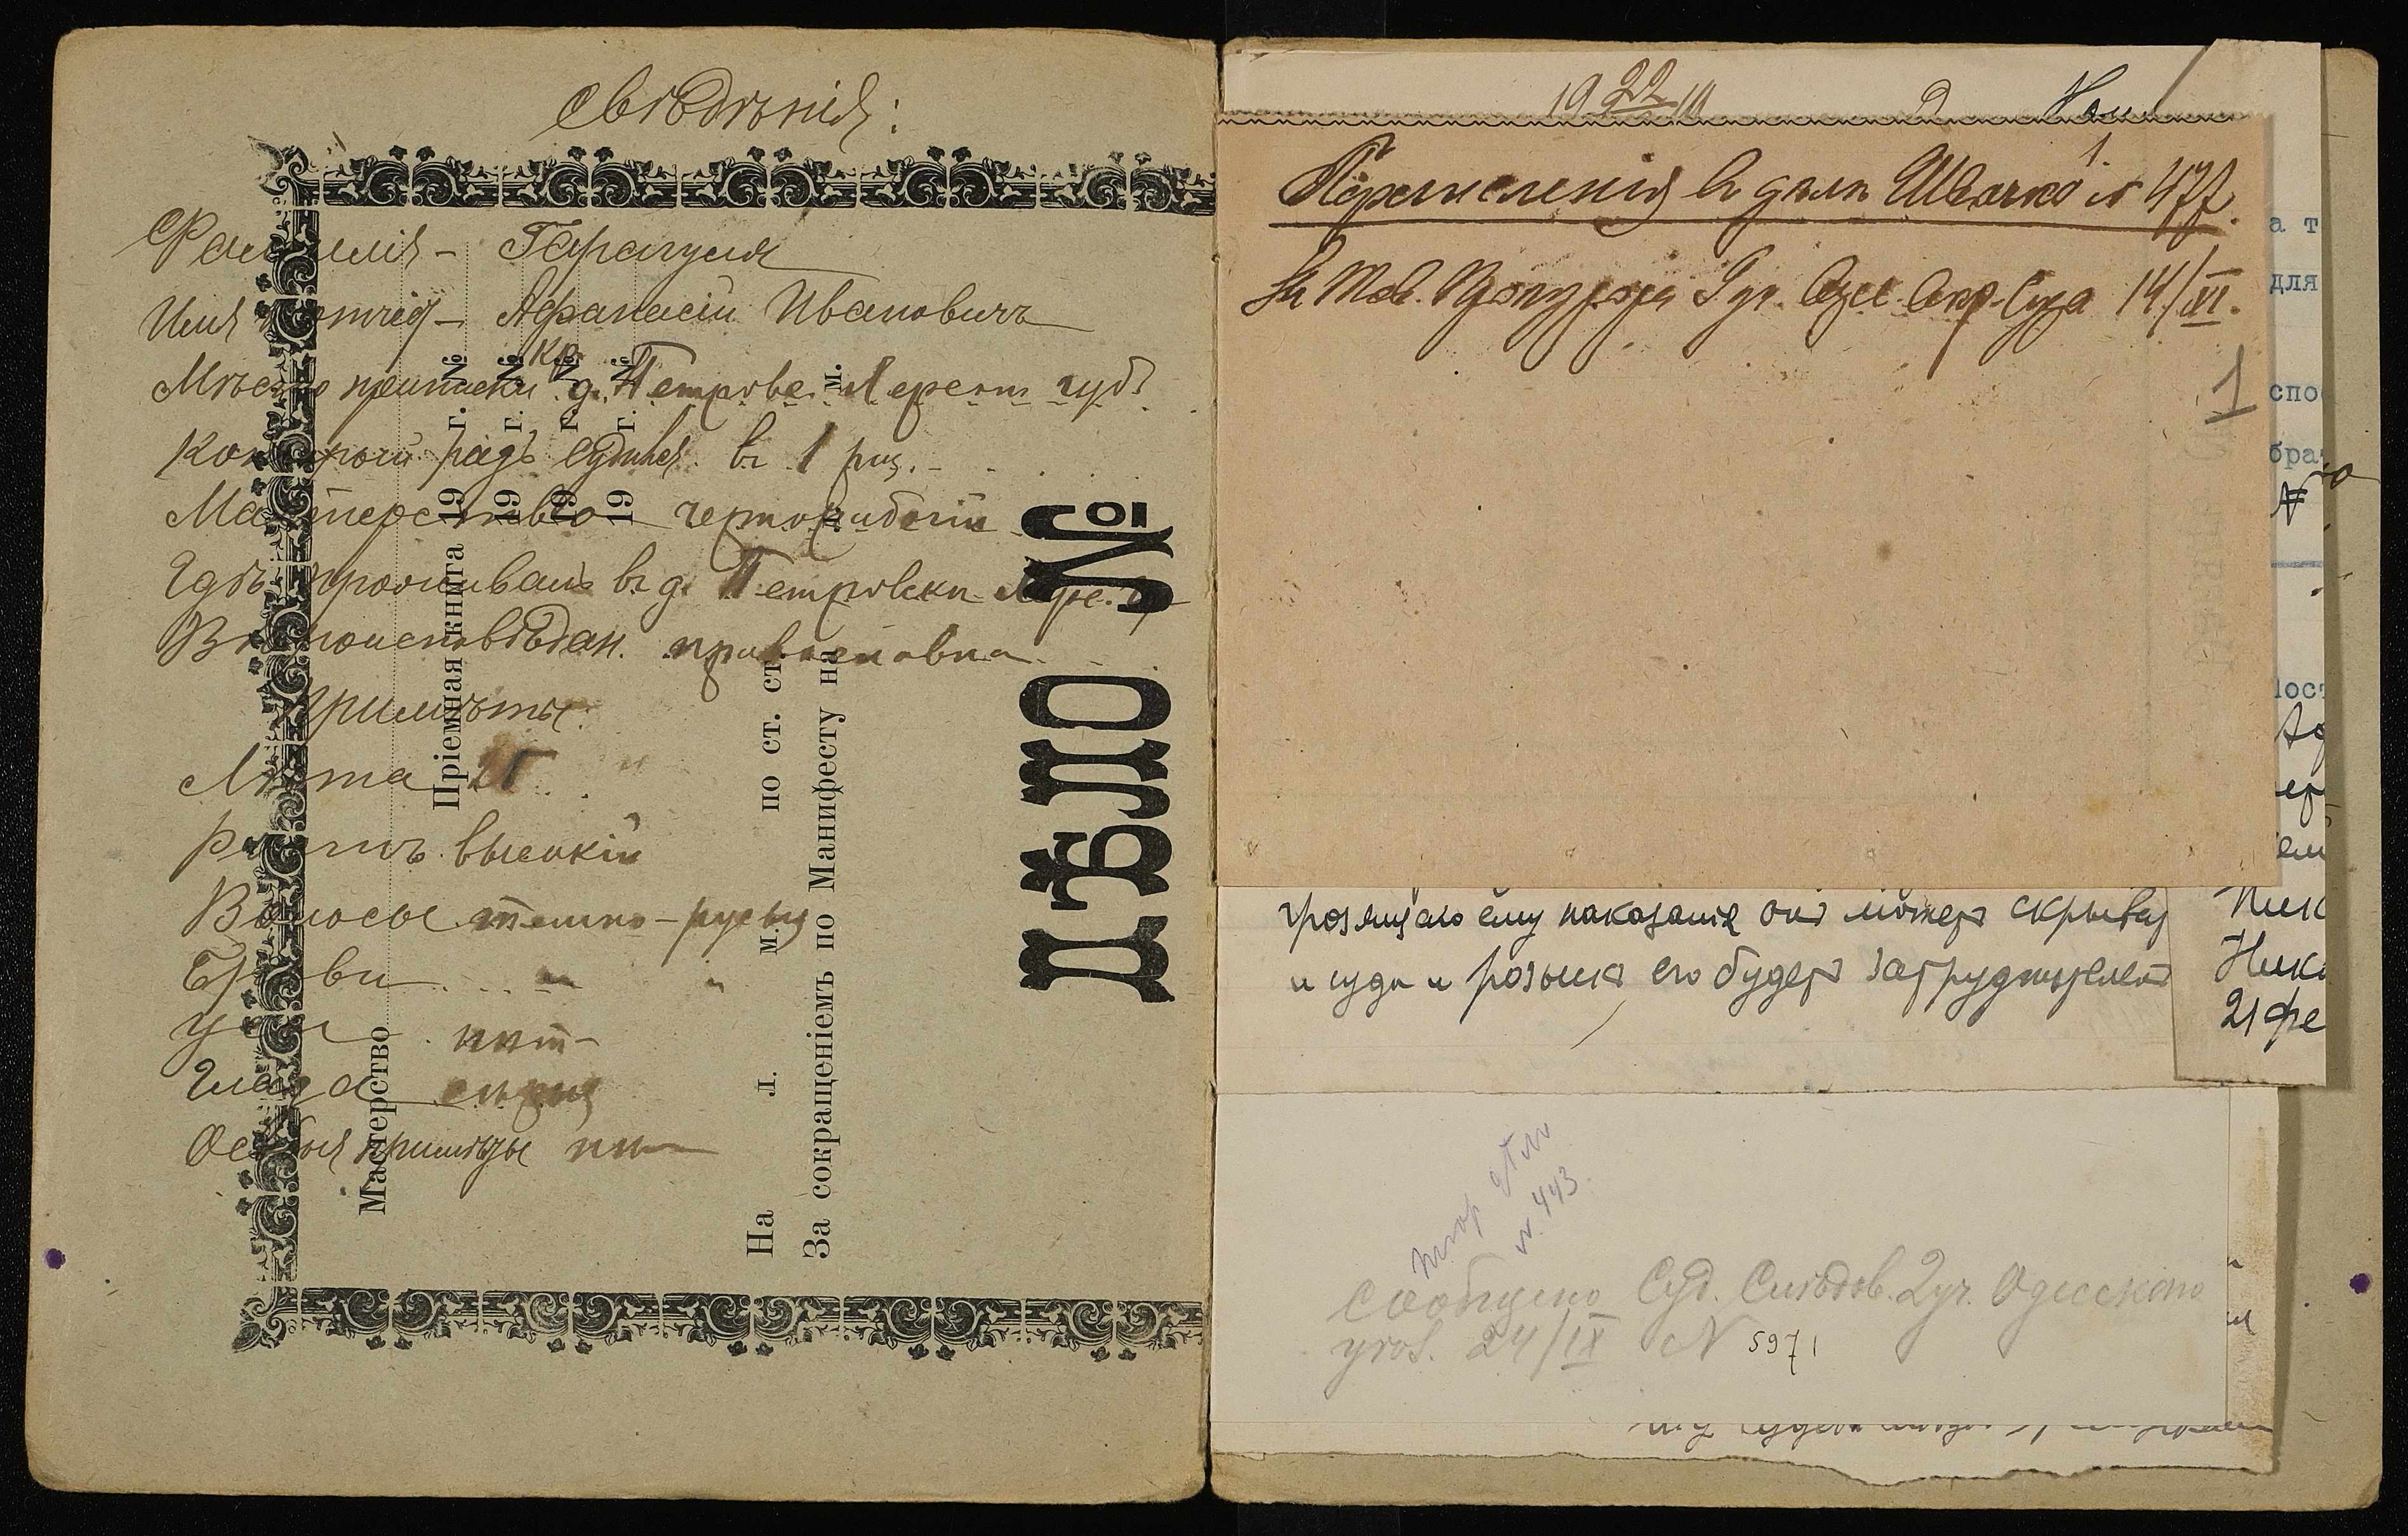 Свѣдѣнія:
Фамилія – Гарагуля
Имя отчество – Афанасій Ивановичъ
кр.
Мѣсто приписки д. Петровс. Херсон. губ.
Который разъ судился въ 1 раз.
Мастерство – чернорабочій
Гдѣ проживалъ въ д. Петровкѣ
Вѣроисповѣдан. православна
Примѣты:
Лѣта 25
Ростъ высокій
Волосы темно-русыя
Брови " "
Усы нѣт
Глаза сѣрыя
Особыя примѣты нѣт
Мастерство
Пріемная книга 19 г. №
19 г. №
19 г. №
19 г. №
На л. м. по ст. ст.
За сокращеніемъ по Манифесту на л. м.
ДѢЛО №
19 22/II
1.
Перечисленія въ дѣлѣ № 477.
За Тов. Прокурора Уч. Одес. Окр. Суда 14/XI.
1
а т
для
спо
бра
№
ем
грозящаго ему наказанія онъ можетъ скрыва
и суда и розыскъ его будетъ затруднителенъ
Ник
Нико
21 фе
№ 443
Сообщено Суд. Слѣдов. 2 уч. Одесскаго
уѣз. 24/IX № 5971